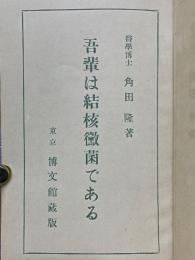 醫學博士 角田隆著
吾輩は結核黴菌である
東京 博文館藏版